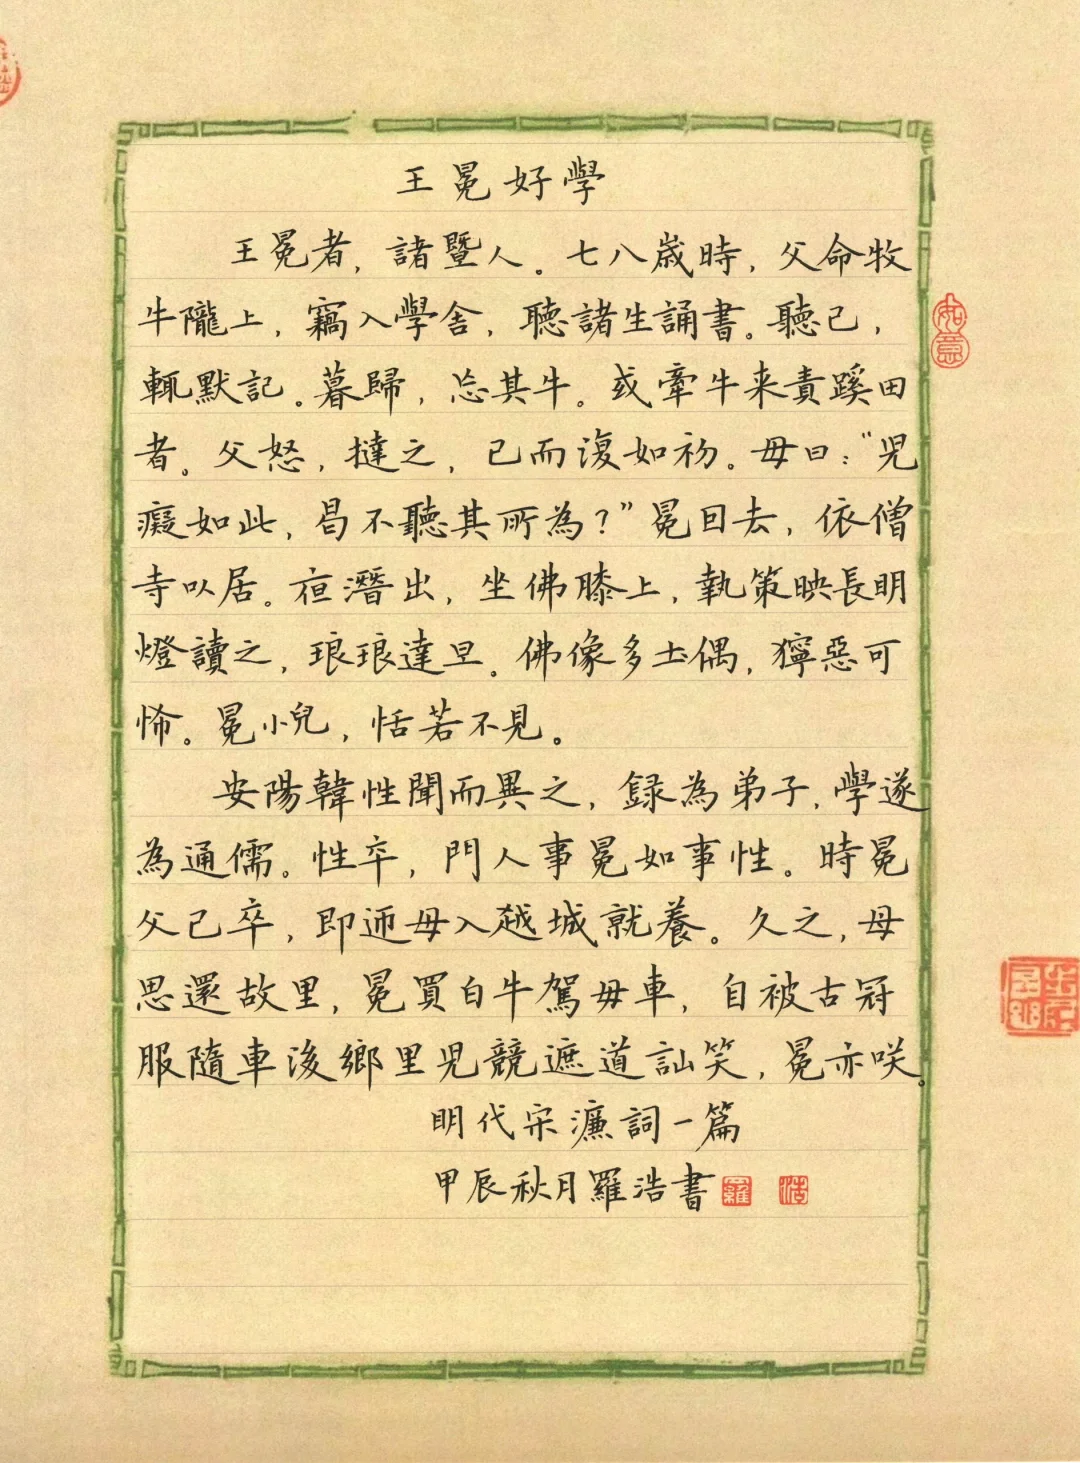 王冕好學
王冕者，諸暨人。七八歲時，父命牧
牛隴上，竊入學舍，聽諸生誦書。聽已，
輒默記。暮歸，忘其牛。或牽牛来責蹊田
者。父怒，撻之，已而復如初。母曰：“兒
癡如此，曷不聽其所為？”冕因去，依僧
寺以居。夜潛出，坐佛膝上，執策映長明
燈讀之，琅琅達旦。佛像多土偶，獰惡可
怖。冕小兒，恬若不見。
安陽韓性聞而異之，録為弟子，學遂
為通儒。性卒，門人事冕如事性。時冕
父已卒，即迎母入越城就養。久之，母
思還故里，冕買白牛駕母車，自被古冠
服隨車後鄉里兒競遮道訕笑，冕亦咲。
明代宋濂詞一篇
甲辰秋月羅浩書
羅 浩
如意